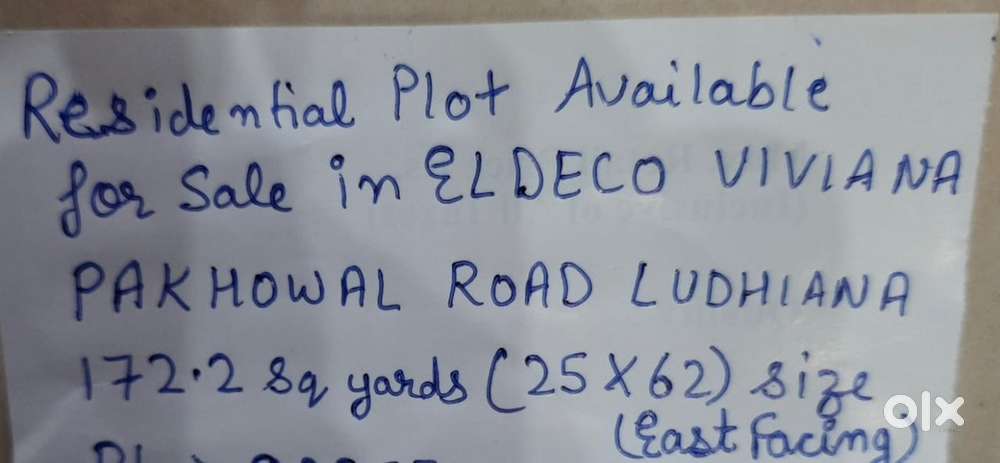 Residential Plot Available
for Sale in ELDECO VIVIANA
PAKHOWAL ROAD LUDHIANA
172.2 Sq yards (25 X 62) size
(East Facing)
olx